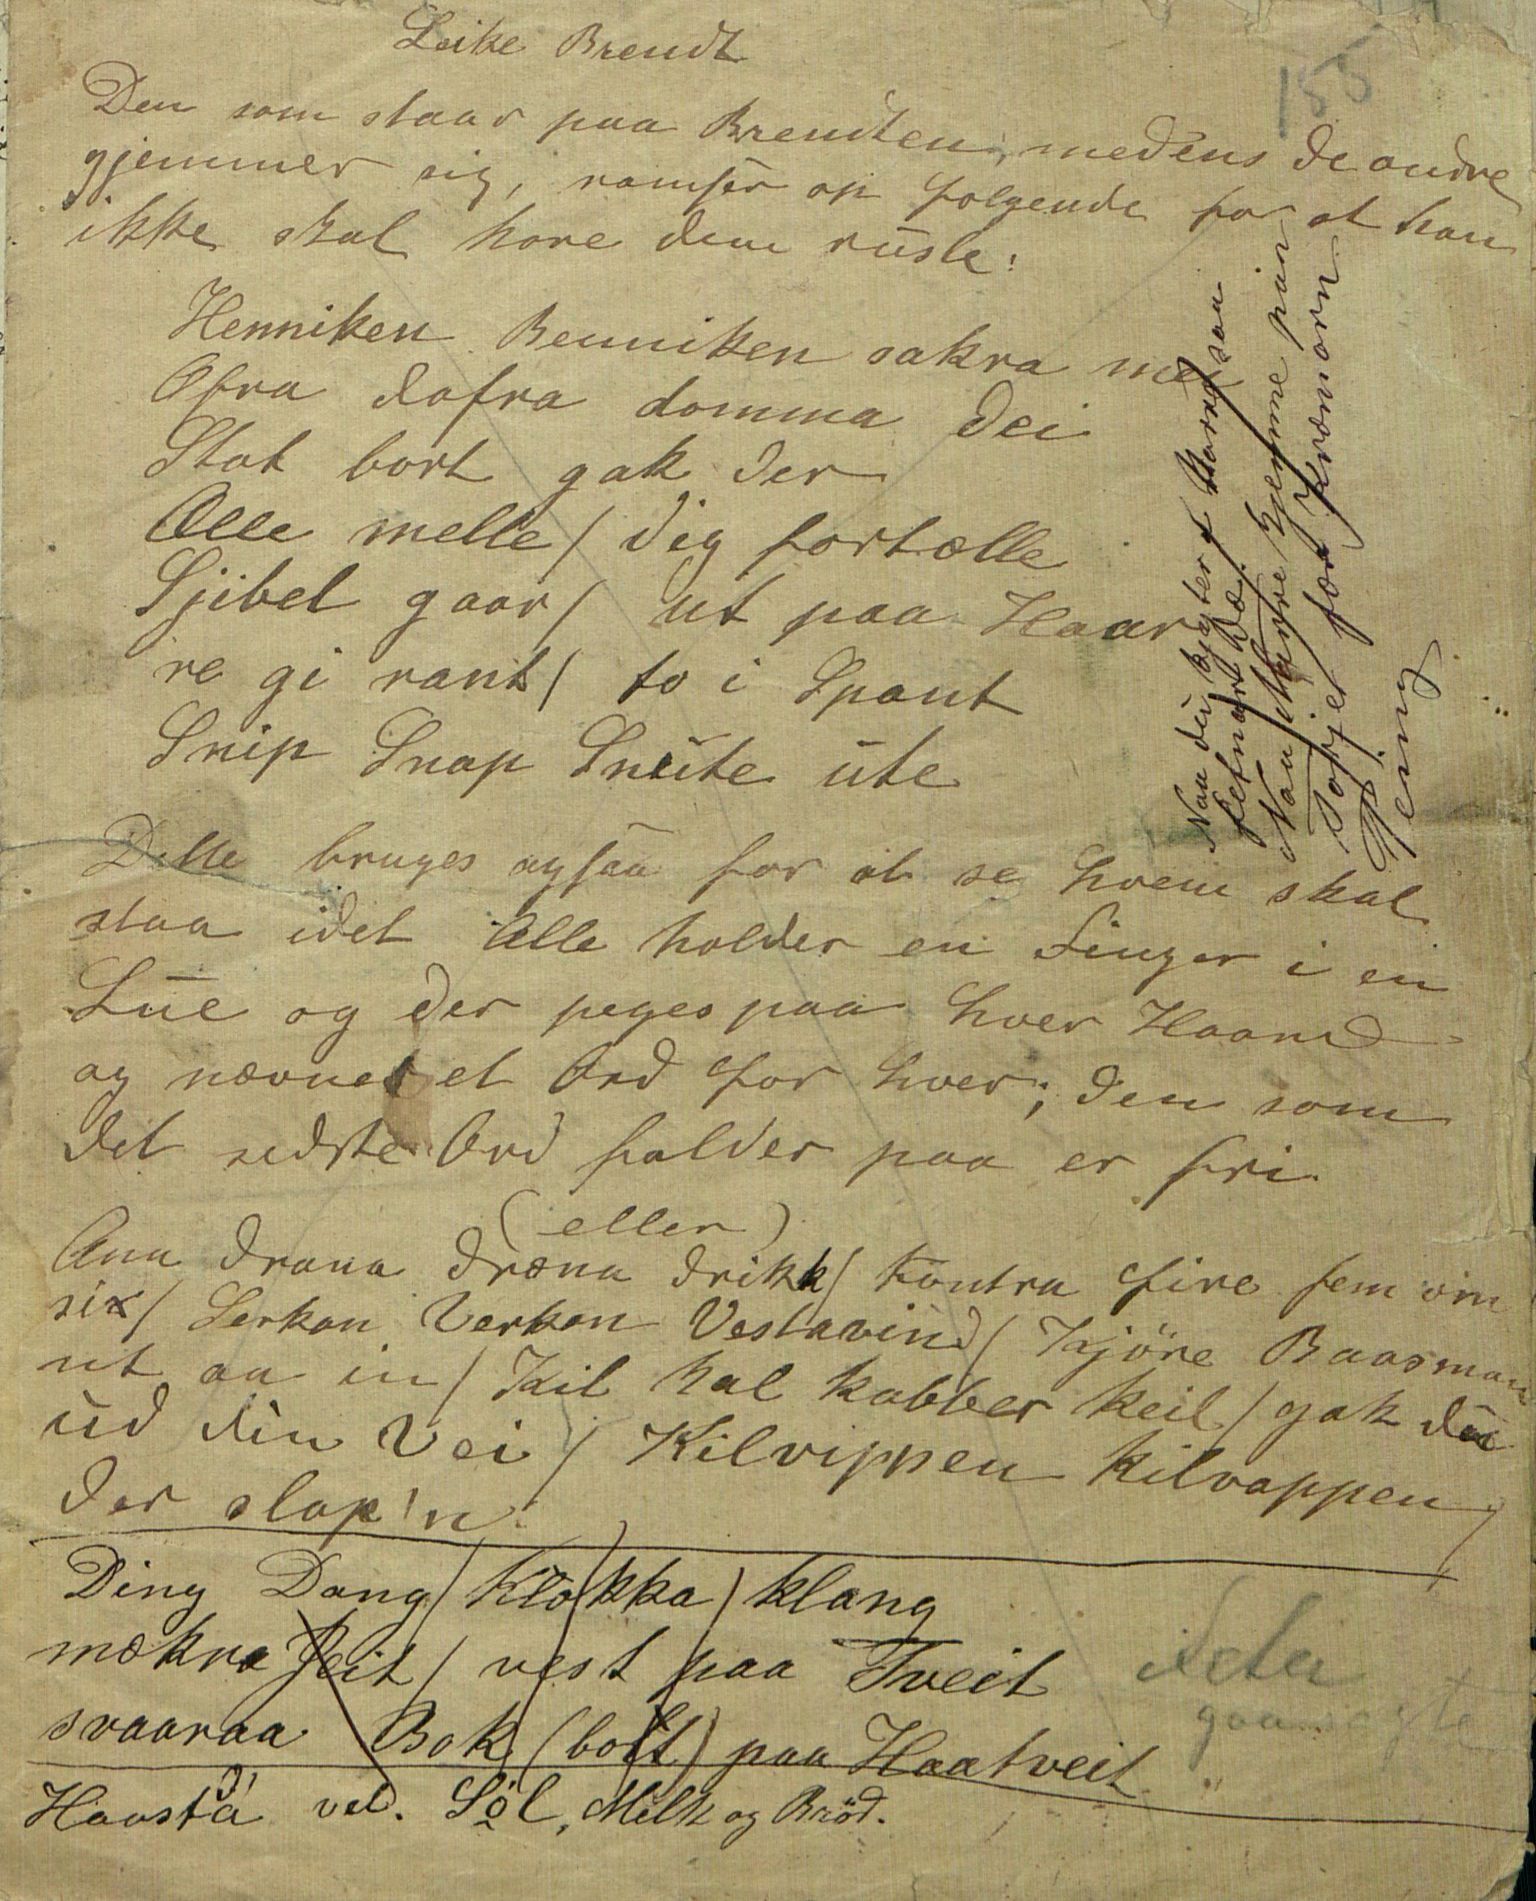 Leike Brendt
155
Den som staar paa Brendten, medens de andre
gjemmer sig, ramser op følgende for at han
ikke skal høre dem rusle:
Henniken Benniken sakra me
Ofra dofra domma dei
Stat bort gak der
Ælle melle / dig fortælle
Sjibel gaar / ut paa Haar
re gi rant / to i Spant
Snip Snap Snute ute
Dette bruges ogsaa for at se hvem skal
staa idet Alle holder en Finger i en
Lue og der peges paa hver Haand
og nævnes et Ord for hver; den som
det sidste Ord falder paa er fri
(eller)
Ana drana dræna drikk / kontra fire fem om
six / Serkon Verkon Vestavind / Kjöre Baasman
ut aa in / Kil kal kabber keil / gak du
ud din Vei / Kilvippen kilvappen
der slap'n
Ding Dang / Klokka / klang
mækra Jeit / vest paa Tveit
svaaraa Bok (bort) paa Haatveit
Haosta ved. Söl, Melk og Bröd.
Naa du
Torjer for